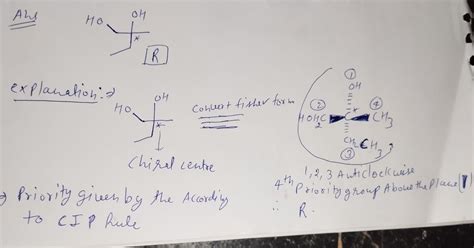 Ans
HO OH
*
R
explanation :⇒
HO OH
*
Convert fisher form
Chiral centre
① OH
② HOH₂C C* CH₃ ④
CH₂CH₃
③
1, 2, 3 Anticlockwise
4th Priority group Above the Plane
∴ R.
⇒ Priority given by the According
to CIP Rule